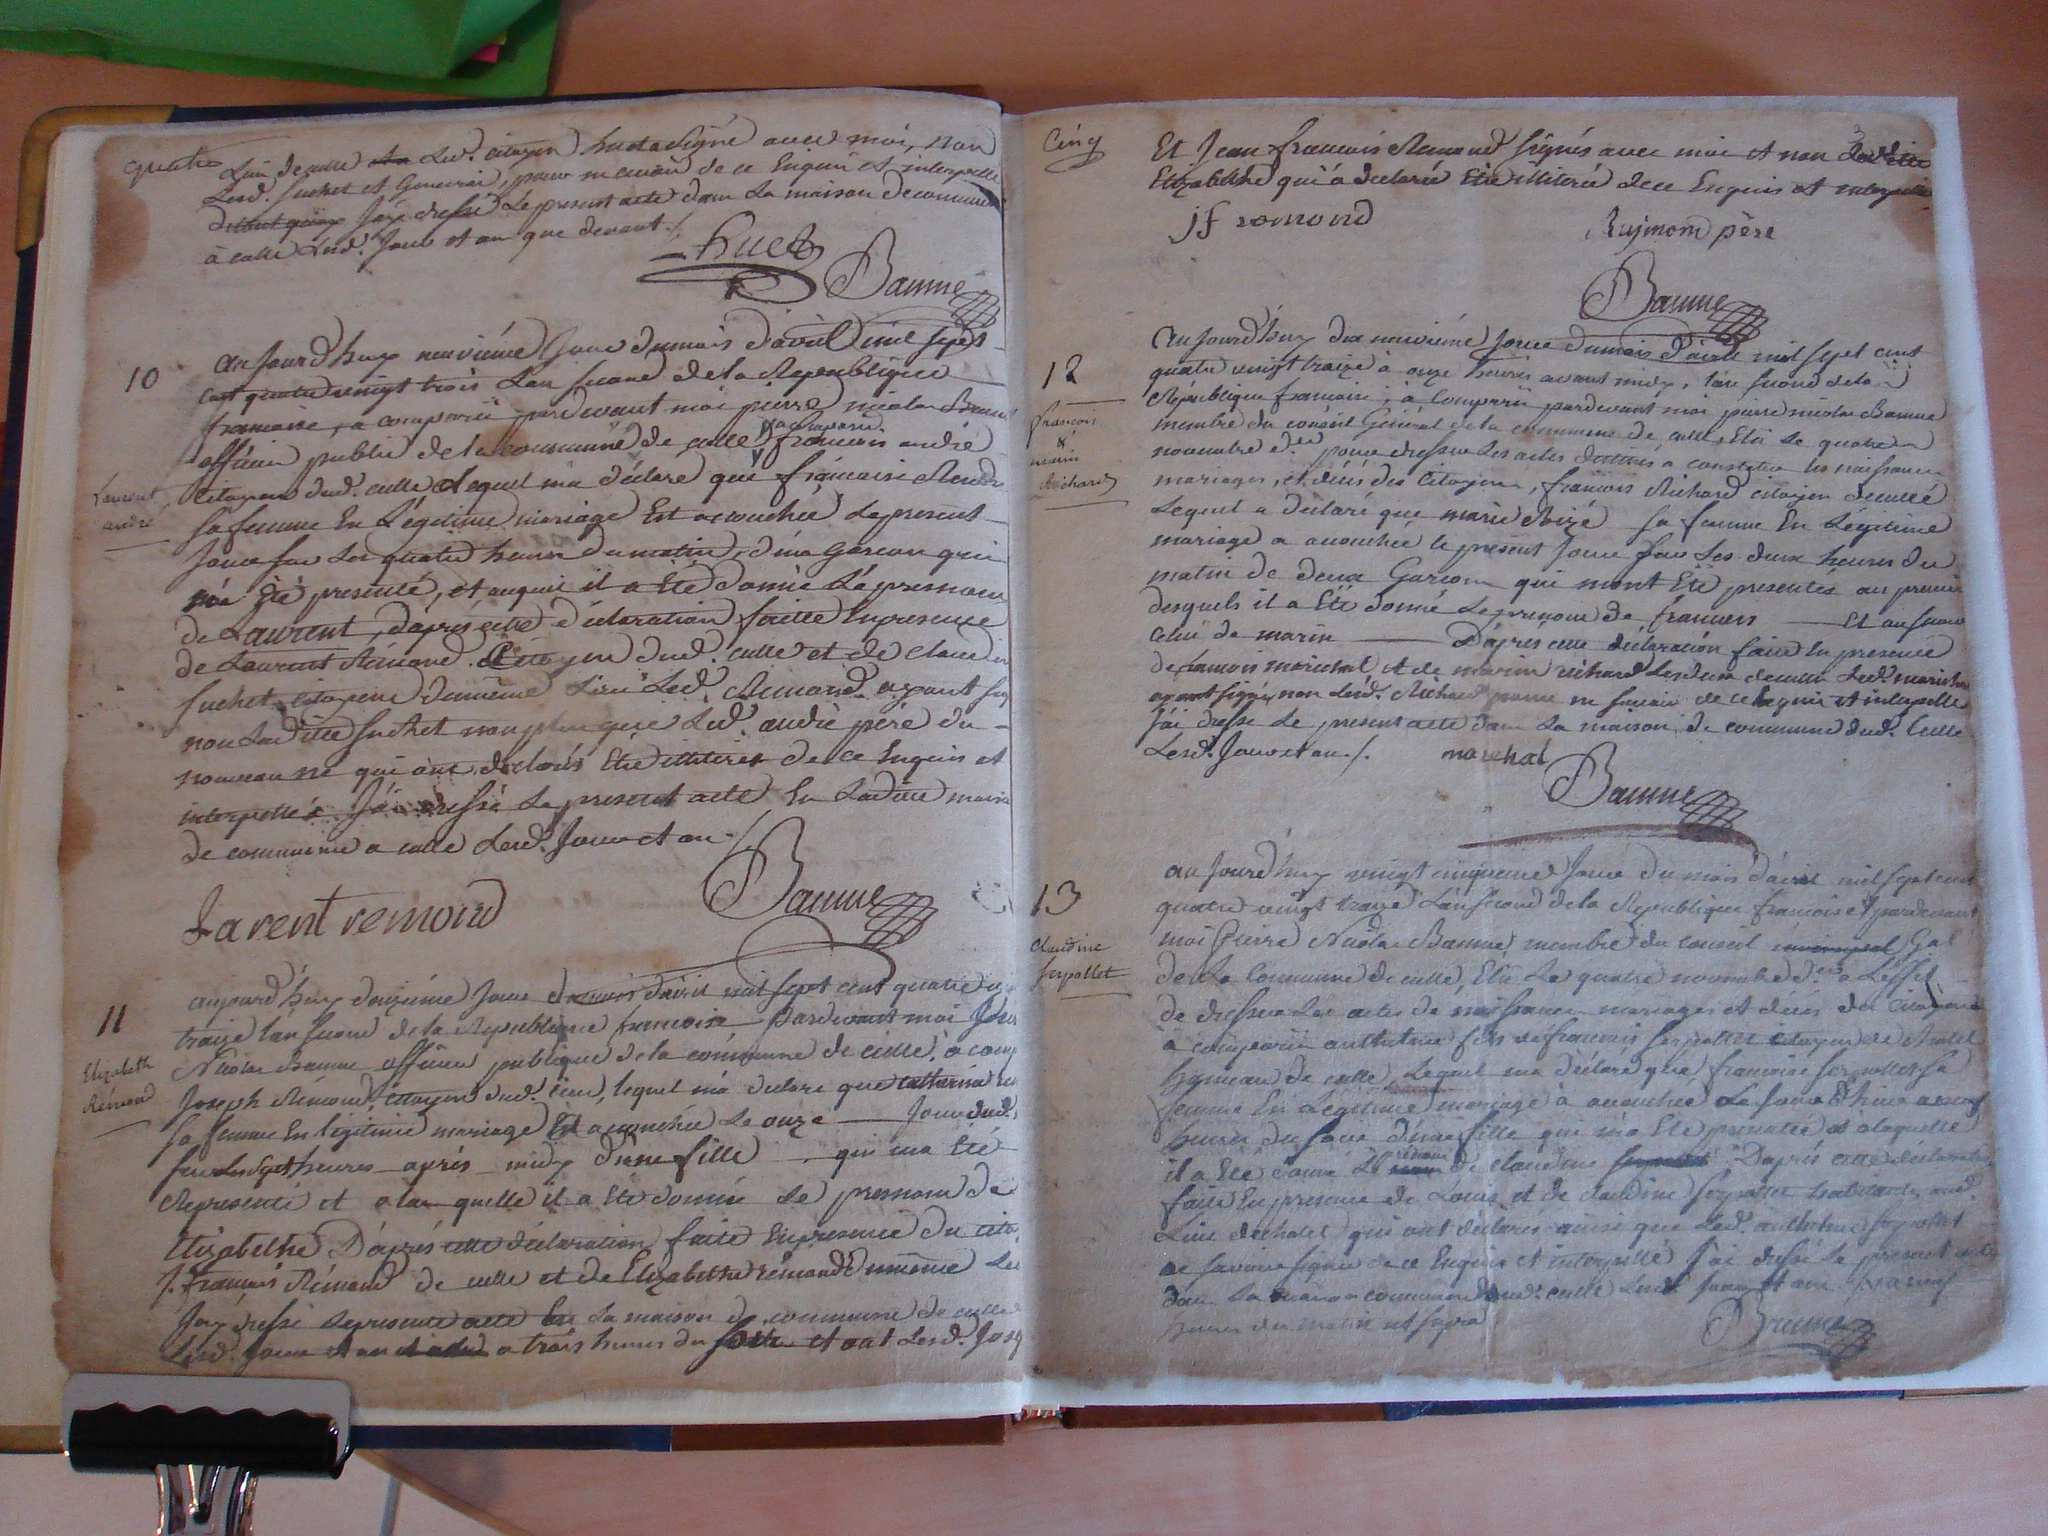 quatre
Lieu de culle Led. citoyen huet a signé avec moi, non
Lesd. suchet et Genevois, pour ne savoir de ce Enquis et interpellé
Jay dressé Le present acte dans La maison de commune
à culle Lesd. Jour et an que devant ./.
huet
Baume
10
Laurent
andré
aujourd'huy neuvième Jour du mois d'avril mil sept
cent quatre vingt trois Lan second de la Republique
francoise, a comparu pardevant moi pierre nicolas Baume
officier public de la commune de culle a comparu francois andré
citoyen dud. culle Lequel m'a déclaré que francoise Remond
sa femme En Légitime mariage Est accouchée Le present
Jour sur Les quatre heures du matin, d'un Garcon qui
m'a été presenté, et auquel il a Eté donné Le prenom
de Laurent, d'après cette déclaration faitte En presence
de Laurent Rémond Citoyen dud. culle et de Claudine
suchet citoyene dumême Lieu Led. Remond ayant signé
non Laditte suchet non plus que Led. andré père du
nouveau né qui ont declarés Etre illiterés de ce Enquis et
interpellés J'ai dressé Le present acte En Laditte maison
de commune a culle Lesd. Jour et an ./.
Larent remond
Baume
11
Elizabeth
Rémond
aujourd'huy douzième Jour du mois d'avril mil sept cent quatre vingt
traize lan second de la Republique francoise Pardevant moi pierre
Nicolas Baume officier publique de la commune de culle, a comparu
Joseph Rémond, citoyen dud. lieu, lequel m'a déclaré que catherine
sa femme En légitime mariage Est accouchée Le onze Jour dud.
sur Les sept heures après midy d'une fille qui ma Eté
Representé et a laquelle il a Eté donnée Le prenom de
Elizabethe D'après cette déclaration faite En presence du citoyen
J. francois Rémond de culle et de Elizabethe rémond du même Lieu
Jay dressé Le present acte En La maison de commune de culle
Lesd. Jour et an a trois heures du soir et ont Lesd. Joseph
Cinq
Et Jean francois Remond signés avec moi et non Laditte
Elizabethe qui a declarée Etre illiterée de ce Enquis et interpellée
jf remond
Raymond père
Baume
12
francois
&
marin
Richard
aujourd'huy dix neuvième Jour du mois d'avril mil sept cent
quatre vingt traize à onze heures avant midy, l'an second de la
République francoise, a comparu pardevant moi pierre nicolas Baume
membre du conseil Général de la commune de culle, Elu Le quatre
novembre d.er pour dresser Les actes destinés a constater les naissances
mariages, et décès des Citoyens, francois Richard citoyen de culle
Lequel a déclaré que marie sa femme En Légitime
mariage a accouchée le présent Jour sur Les deux heures du
matin de deux Garcons qui mont Eté presentés au premier
desquels il a Eté donné Le prenom de francois Et au second
Celui de marin D'après cette déclaration faite En presence
de francois marechal et de marin richard Lesdeux de culle Led. marechal
ayant signé, non Led. Richard pour ne savoir de ce Enquis et interpellé
J'ai dressé Le present acte dans La maison de commune dud. Culle
Lesd. Jour et an ./.
marchal
Baume
13
Claudine
serpollet
aujourd'huy vingt cinquieme Jour du mois d'avril mil sept cent
quatre vingt traize L'an second de la Republique francoise pardevant
moi pierre Nicolas Baume membre du conseil Gal
de La Commune de culle, Elu Le quatre novembre d.er a L'effet
de dresser Les actes de naissance mariages et décès des Citoyens
à comparu anthelme fils de francois serpollet citoyen de
hameau de culle, Lequel ma déclaré que francoise serpollet sa
femme En Légitime mariage à accouchée Le Jour d'hier a
heures du soir d'une fille qui m'a Eté presentée et a laquelle
il a Eté donné Le prénom de claudine D'après cette déclaration
faite En presence de Louis et de claudine serpollet habitants aud.
Lieu qui ont déclarés ainsi que Led. anthelme serpollet
ne savoir signer de ce Enquis et interpellé J'ai dressé Le present acte
dans La maison commune dud. culle Lesd. Jour et an
heures du matin
Baume